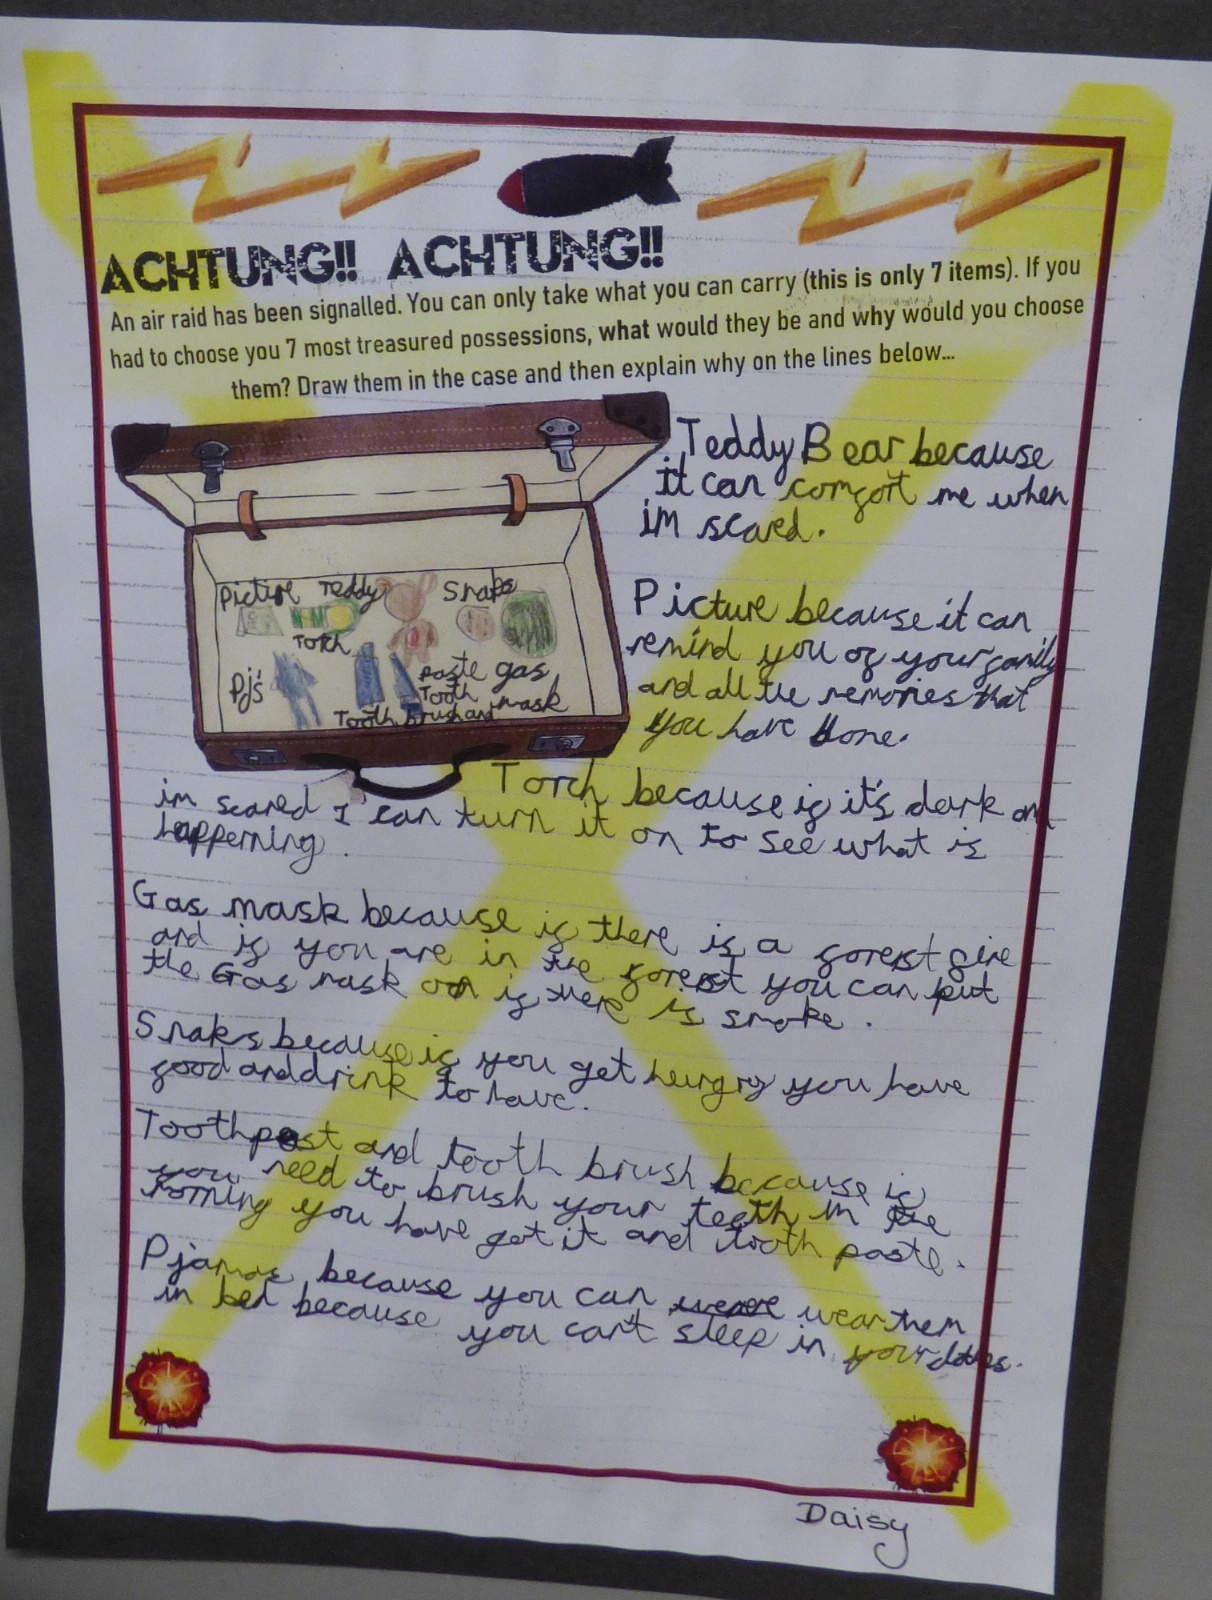 ACHTUNG!! ACHTUNG!!
An air raid has been signalled. You can only take what you can carry (this is only 7 items). If you
had to choose you 7 most treasured possessions, what would they be and why would you choose
them? Draw them in the case and then explain why on the lines below...
Picture Teddy Snaks
Torch
Pjs
paste gas
Tooth mask
Tooth brush and
Teddy Bear because
it can comfort me when
im scared.
Picture because it can
remind you of your family
and all the memories that
you have done.
Torch because if it's dark and
im scared I can turn it on to see what is
happerning.
Gas mask because if there is a forerst fire
and if you are in the forerst you can put
the Gas mask on if there is smoke.
Snaks because if you get hungry you have
food and drink to have.
Toothpast and tooth brush because if
you need to brush your teeth in the
morning you have got it and tooth paste.
Pjamas because you can wear them
in bed because you can't sleep in your clothes.
Daisy